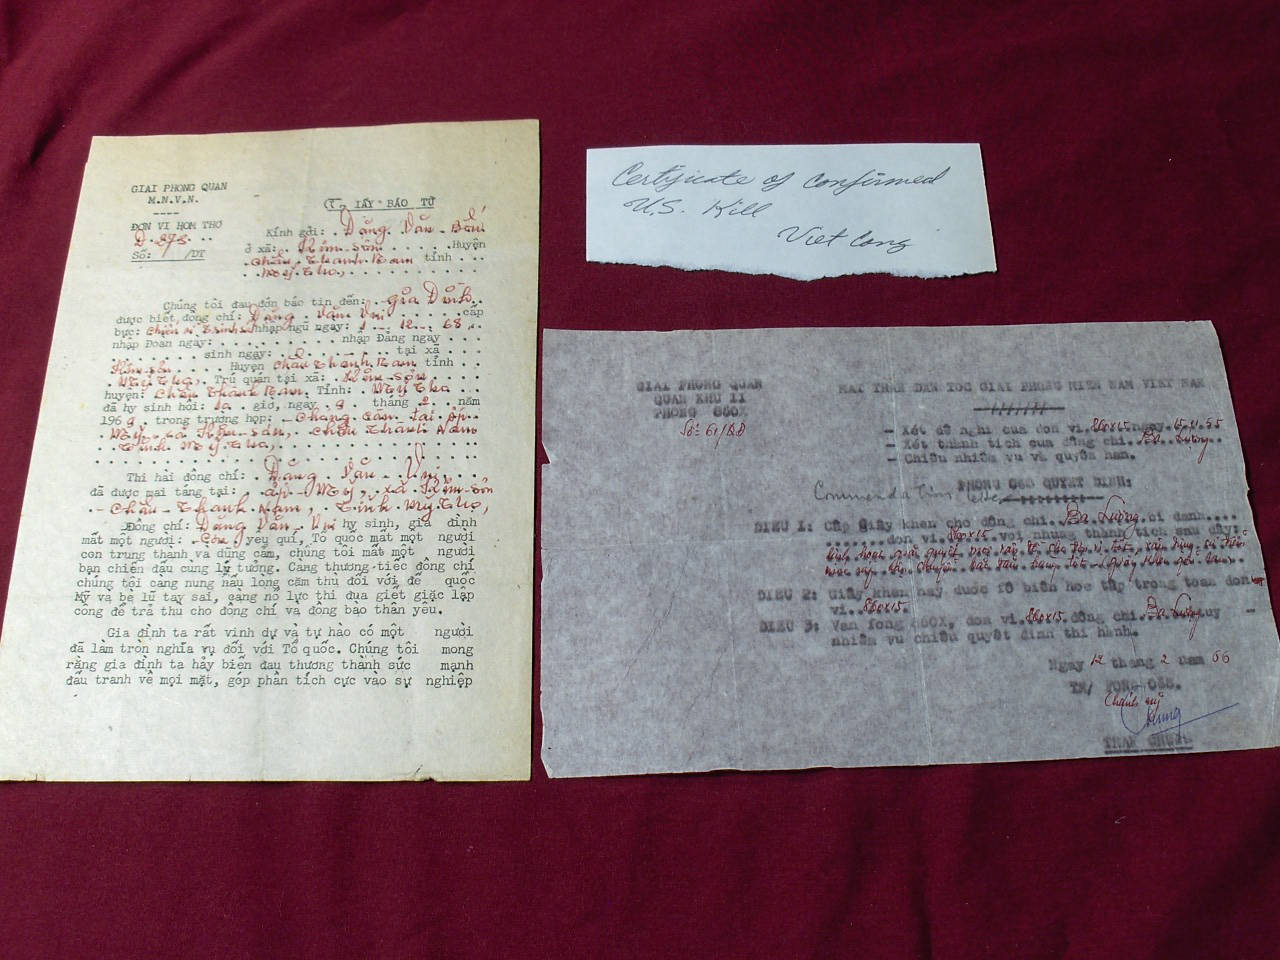 GIAI PHONG QUAN
M.N.V.N.
----
ĐƠN VỊ HỌM THƠ
Số: /DT
IẤY BÁO TỬ
Kính gởi: Đặng Văn
ở xã: Kim-Sơn Huyện
Châu Thanh Nam tỉnh
Mỹ Tho,
Chúng tôi đau đớn báo tin đến: gia Đình
được biết đồng chí: Đặng Văn cấp
bực: nhập ngũ ngày: 1 - 12 - 68
nhập Đoàn ngày: nhập Đảng ngày
sinh ngày: tại xã
Kim-Sơn Huyện Châu Thanh Nam tỉnh
Mỹ Tho, Trú quán tại xã: Kim-Sơn
huyện: Châu Thanh Nam Tỉnh: Mỹ Tho
đã hy sinh hồi: giờ, ngày 9 tháng 2 năm
1969, trong trường hợp: Chống càn tại ấp
Mỹ, xã Kim-Sơn, Châu Thành Nam
Tỉnh Mỹ Tho,
Thi hài đồng chí: Đặng Văn
đã được mai táng tại: ấp Mỹ, xã Kim-Sơn
- Châu - Thành Nam, Tỉnh Mỹ Tho,
Đồng chí: Đặng Văn hy sinh, gia đình
mất một người: Con yêu quí, Tổ quốc mất một người
con trung thành và dũng cảm, chúng tôi mất một người
bạn chiến đấu cùng lý tưởng. Càng thương tiếc đồng chí
chúng tôi càng nung nấu lòng căm thù đối với đế quốc
Mỹ và bè lũ tay sai, càng nổ lực thi đua giết giặc lập
công để trả thù cho đồng chí và đồng bào thân yêu.
Gia đình ta rất vinh dự và tự hào có một người
đã làm tròn nghĩa vụ đối với Tổ quốc. Chúng tôi mong
rằng gia đình ta hãy biến đau thương thành sức mạnh
đấu tranh về mọi mặt, góp phần tích cực vào sự nghiệp
Certificate of confirmed
U.S. Kill
Viet Cong
GIAI PHONG QUAN
QUAN KHU II
PHONG 660X
Số: 61/QĐ
MAT TRAN DAN TOC GIAI PHONG MIEN NAM VIET NAM
- Xét đề nghi cua đon vi 860x15 ngay
- Xét thành tích cua đông chi Ba Lương
- Chiêu nhiêm vu và quyên han.
PHONG QUYET DINH:
Commendation letter
DIEU 1: Câp Giây khen cho đông chi Ba Lương bi danh
đon vi 860x15 voi nhung thành tich sau đây:
DIEU 2: Giây khen nây đuoc fô biên hoc tâp trong toan đon
vi 860x15
DIEU 3: Van fong 660X, đon vi 860x15 đông chi Ba Lương tuy
nhiêm vu chiêu quyêt đinh thi hành.
Ngay 12 thang 2 nam 66
TM/ FONG